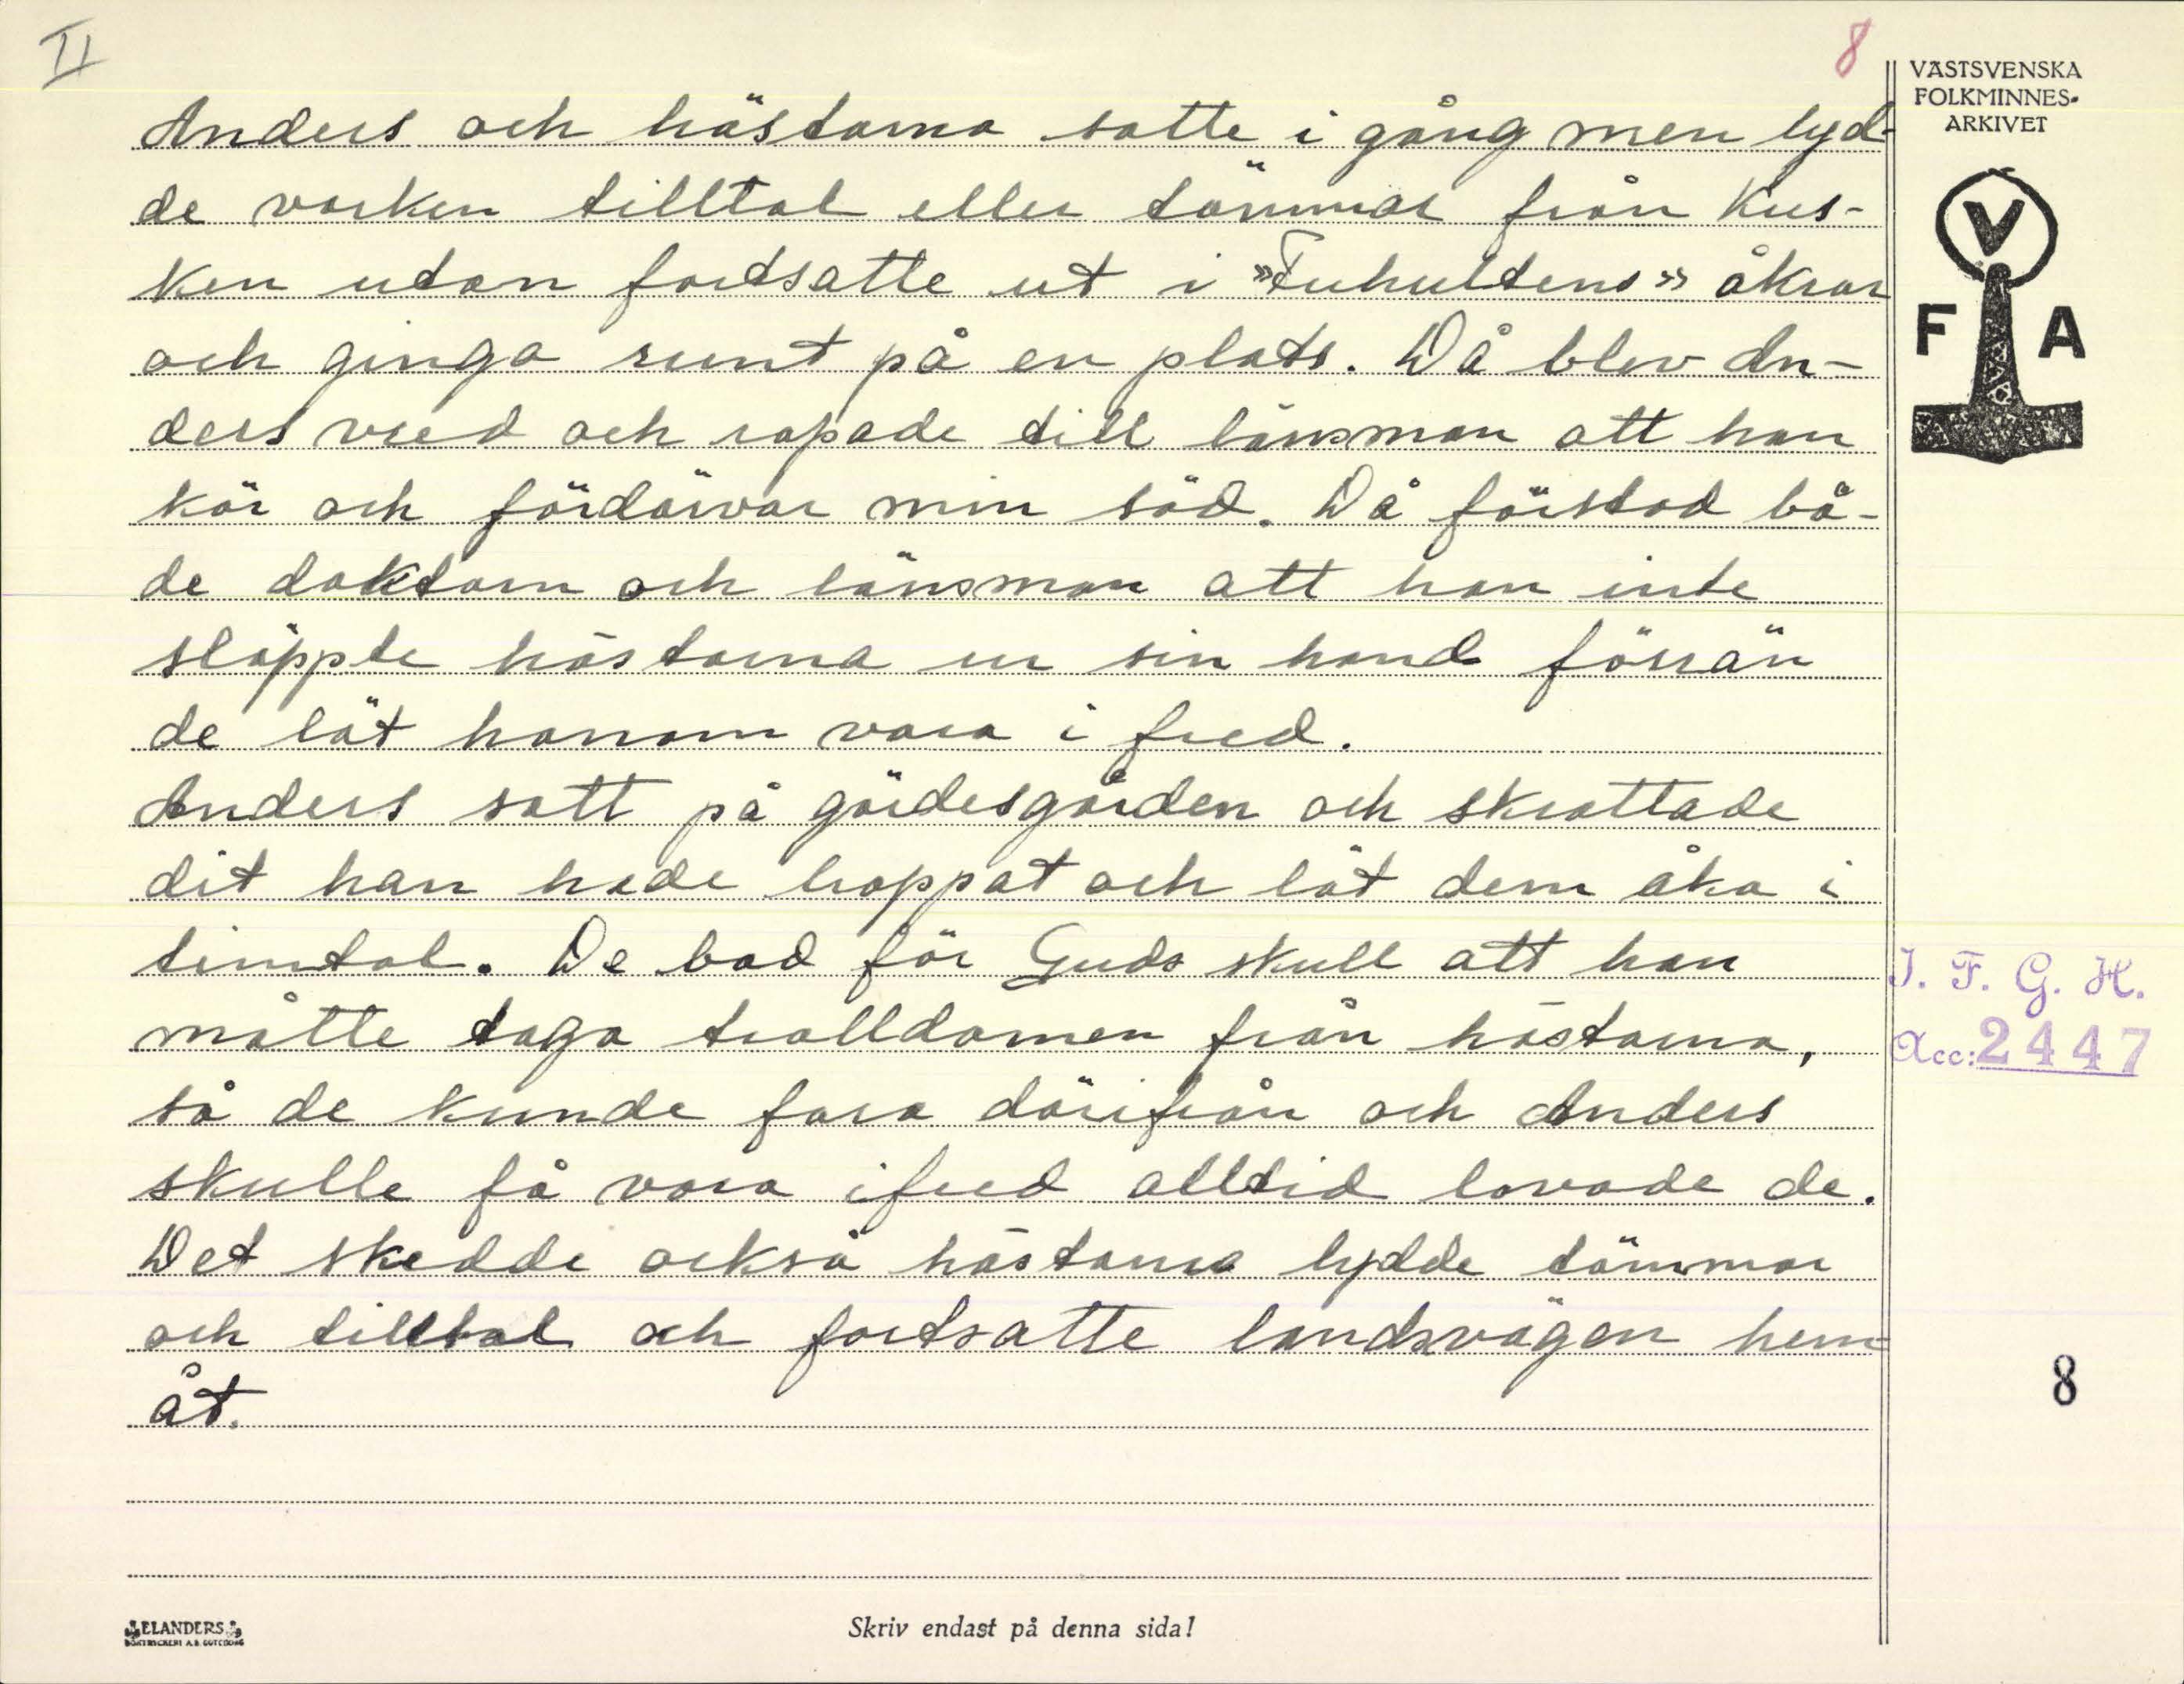 II
8
VÄSTSVENSKA
FOLKMINNES-
ARKIVET
V
F A
Anders och hästarna satte i gång men lyd-
de varken tilltal eller tömmar från kus-
ken utan fortsatte ut i "Fuhultens" åkrar
och gingo runt på en plats. Då blev An-
ders vred och ropade till länsman att han
kör och fördärvar min säd. Då förstod bå-
de doktorn och länsman att han inte
släppte hästarna ur sin hand förrän
de lät honom vara i fred.
Anders satt på gärdesgården och skrattade
dit han hade hoppat och lät dem åka i
timtal. De bad för Guds skull att han
måtte taga trolldomen från hästarna,
så de kunde fara därifrån och Anders
skulle få vara ifred alltid lovade de.
Det skedde också hästarna lydde tömmar
och tilltal och fortsatte landsvägen hem-
åt.
I. F. G. H.
Acc: 2447
8
ELANDERS
BOKTRYCKERI A.B. GÖTEBORG
Skriv endast på denna sida!